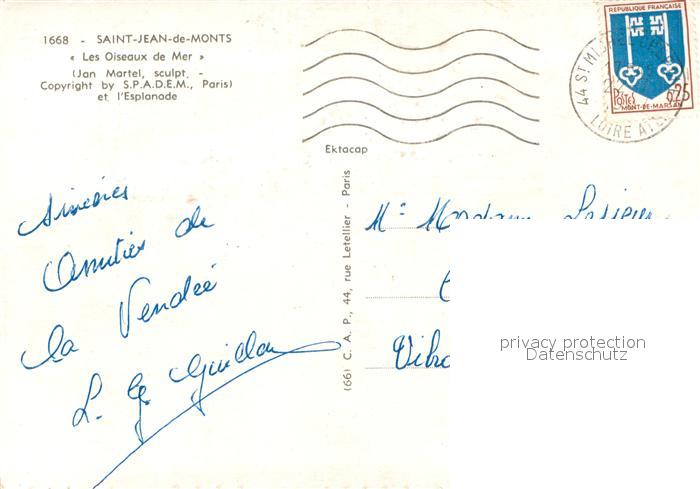 1668 - SAINT-JEAN-de-MONTS
« Les Oiseaux de Mer »
(Jan Martel, sculpt. -
Copyright by S.P.A.D.E.M., Paris)
et l'Esplanade
REPUBLIQUE FRANÇAISE
POSTES 0,25
MONT-DE-MARSAN
44 ST M
LOIRE ATL
Ektacap
(66) C. A. P., 44, rue Letellier - Paris
Sincères
Amitiés de
la Vendée
L. G. Guillou
Mr Madame
privacy protection
Datenschutz